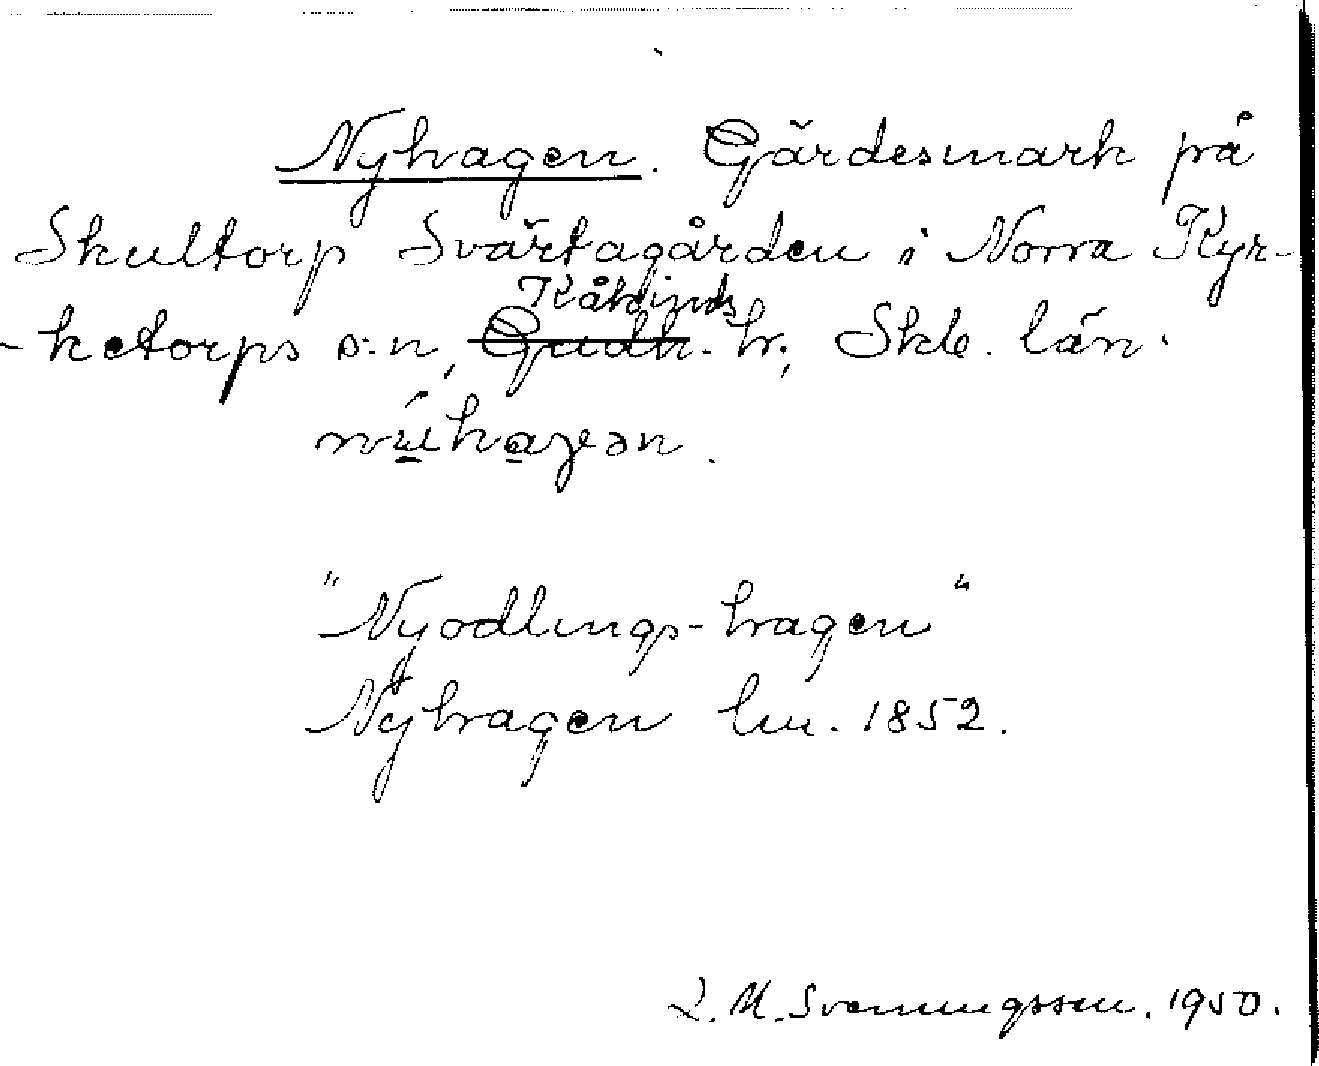 Nyhagen. Gärdesmark på
Skultorp Svärtagården i Norra Kyr-
Kåkinds
-ketorps s:n, Gudh. hr, Skb. län.
"Nyodlings-hagen"
Nyhagen lm. 1852.
L. M. Svenningsson. 1950.